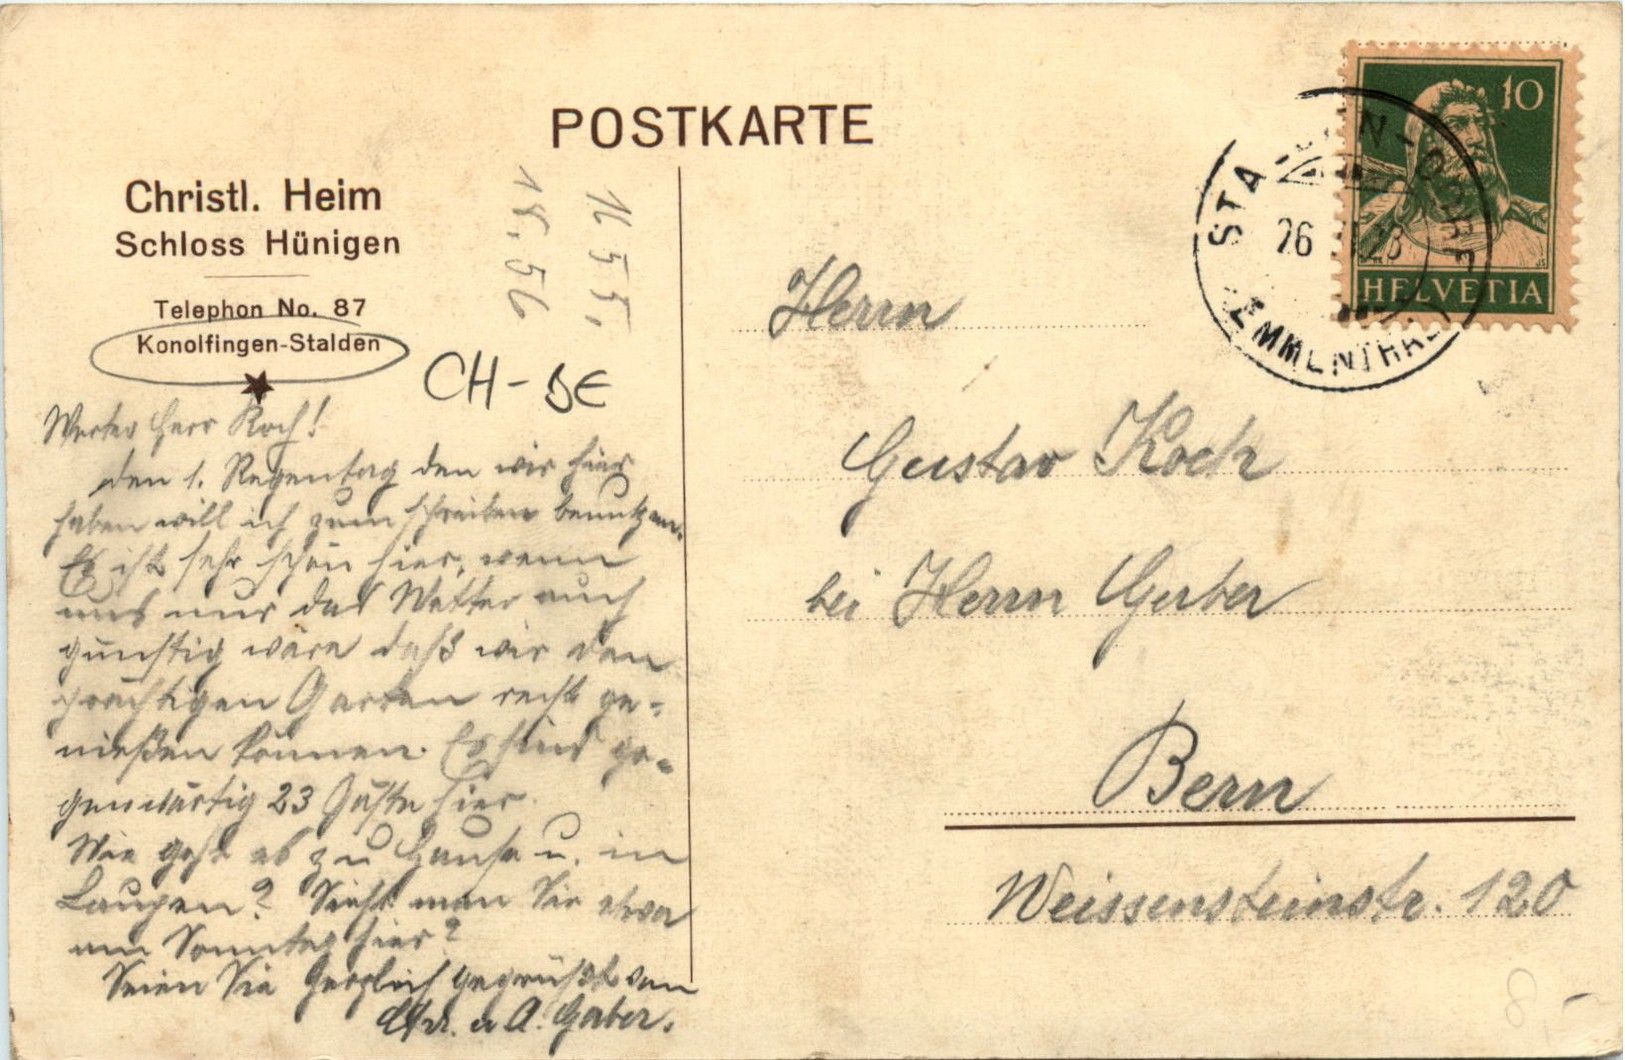 POSTKARTE
Christl. Heim
Schloss Hünigen
Telephon No. 87
Konolfingen-Stalden
CH-BE
1655.
18.56
Werter Herr Koch!
den 1. Regentag den wir hier
haben will ich zum schreiben benutzen.
Es ist sehr schön hier, wenn
uns nur das Wetter auch
günstig wäre daß wir den
prächtigen Garten recht ge-
nießen können. Es sind ge-
genwärtig 23 Gäste hier.
Wie geht es zu Hause u. in
Laupen? Sieht man Sie etwa
am Sonntag hier?
Seien Sie herzlich gegrüßt von
u A. Gerber.
10
HELVETIA
STALDEN-DORF
26 23
EMMENTHAL
Herrn
Gustav Koch
bei Herrn Gerber
Bern
Weissensteinstr. 120
8.-